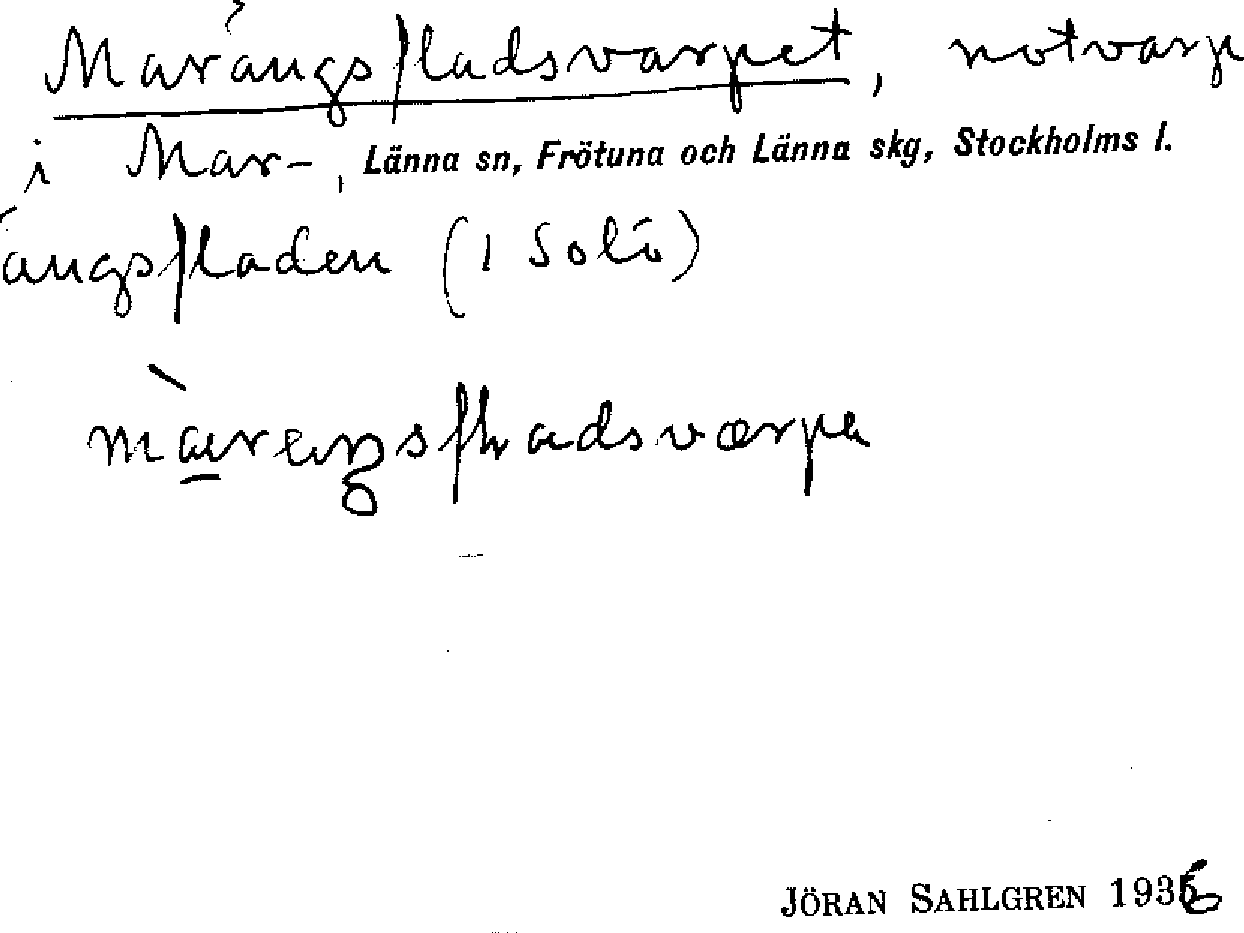 Marängsfladsvarpet, notvarp
i Mar-, Länna sn, Frötuna och Länna skg, Stockholms l.
ängsfladen (i Solö)
JÖRAN SAHLGREN 1936